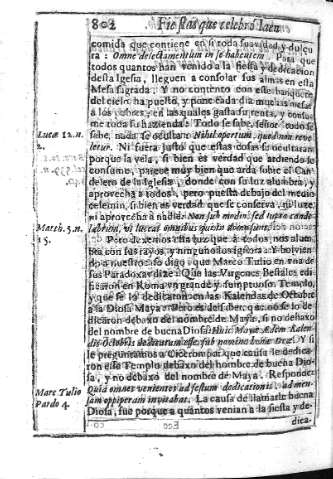 802 Fiestas que celebrò Iaen
comida que contiene en si toda suavidad y dulçu
ra: Omne delectamentum in se habentem. Para que
todos quantos han venido a la fiesta y dedicacion
desta Iglesia, lleguen a consolar sus almas en esta
Mesa sagrada. Y no contento con este banquete
del cielo ha puesto, y pone cada dia muchas mesas
a los pobres; en las quales gasta su renta, y consu
me toda su hazienda. Todo se sabe, señor todo se
sabe, nada se oculta: Nihil opertum, quod non reve
Lucæ 12. n.
letur. Ni fuera justo que estas cosas se ocultaran
2.
porque la vela, si bien es verdad que ardiendo se
consume, parece muy bien que arda sobre el Can
delero de la Iglesia, donde con su luz alumbra, y
aprovecha a todos, pero puesta debajo del medio
celemin, si bien es verdad que se conserva, ni luze,
ni aprovecha a nadie. Non sub modio, sed supra cande
Matth. 5. n.
labrum, ut luceat omnibus qui in domo sunt.
15.
Pero dexemos esta luz que a todos nos alum
bra con sus rayos, y a ninguno nos ignora: Y bolvien
do a nuestro digo, que Marco Tulio en vna de
sus Paradoxas dize: Que las Virgenes Bestales edi
ficaron en Roma vn grande y sumptuoso Templo,
y que se lo dedicaron en las Kalendas de Octubre
a la Diosa Maya: Pero es de saber que no se lo de
dicaron debaxo del nombre de Maya, si no debaxo
del nombre de buena Diosa: Huic Mayæ Ædem Kalen
dis Octobris dedicatum esse sub nomine bonæ Deæ. Y si
le preguntamos a Ciceron por que causa le dedica
ron esse Templo debaxo del nombre de buena Dio
sa, y no debaxo del nombre de Maya. Responde:
Quia omnes venientes ad festum dedicationis, ad men
Marc Tulio
sam opiperam invitabat. La causa de llamarse buena
Pardo 4.
Diosa, fue porque a quantos venian a la fiesta y de-
dica-